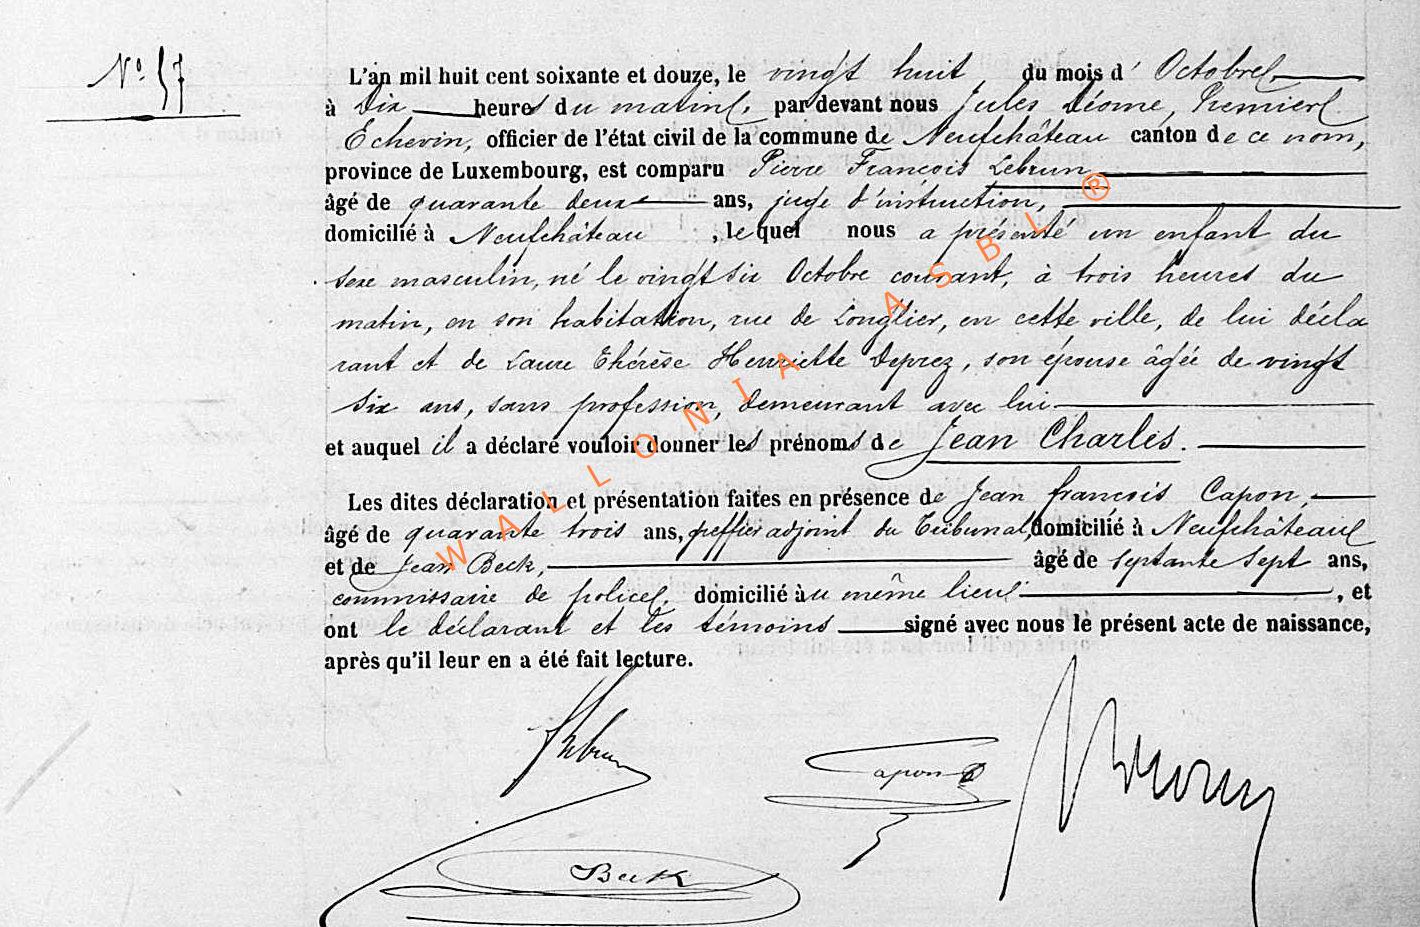 N° 57
L'an mil huit cent soixante et douze, le vingt huit, du mois d'Octobre
à Dix heures du matin, par devant nous Jules Déome, Premier
Echevin, officier de l'état civil de la commune de Neufchâteau canton de ce nom,
province de Luxembourg, est comparu Pierre François Lebrun
âgé de quarante deux ans, juge d'instruction,
domicilié à Neufchâteau, lequel nous a présenté un enfant du
sexe masculin, né le vingt six Octobre courant, à trois heures du
matin, en son habitation, rue de Longlier, en cette ville, de lui décla
rant et de Laure Thérèse Henriette Deprez, son épouse âgée de vingt
six ans, sans profession, demeurant avec lui
et auquel il a déclaré vouloir donner les prénoms de Jean Charles.
Les dites déclaration et présentation faites en présence de Jean françois Capon,
âgé de quarante trois ans, greffier adjoint du Tribunal, domicilié à Neufchâteau
et de Jean Beck, âgé de septante sept ans,
commissaire de police, domicilié au même lieu, et
ont le déclarant et les témoins signé avec nous le présent acte de naissance,
après qu'il leur en a été fait lecture.
Lebrun
Capon
Beck
WALLONIA ASBL ®